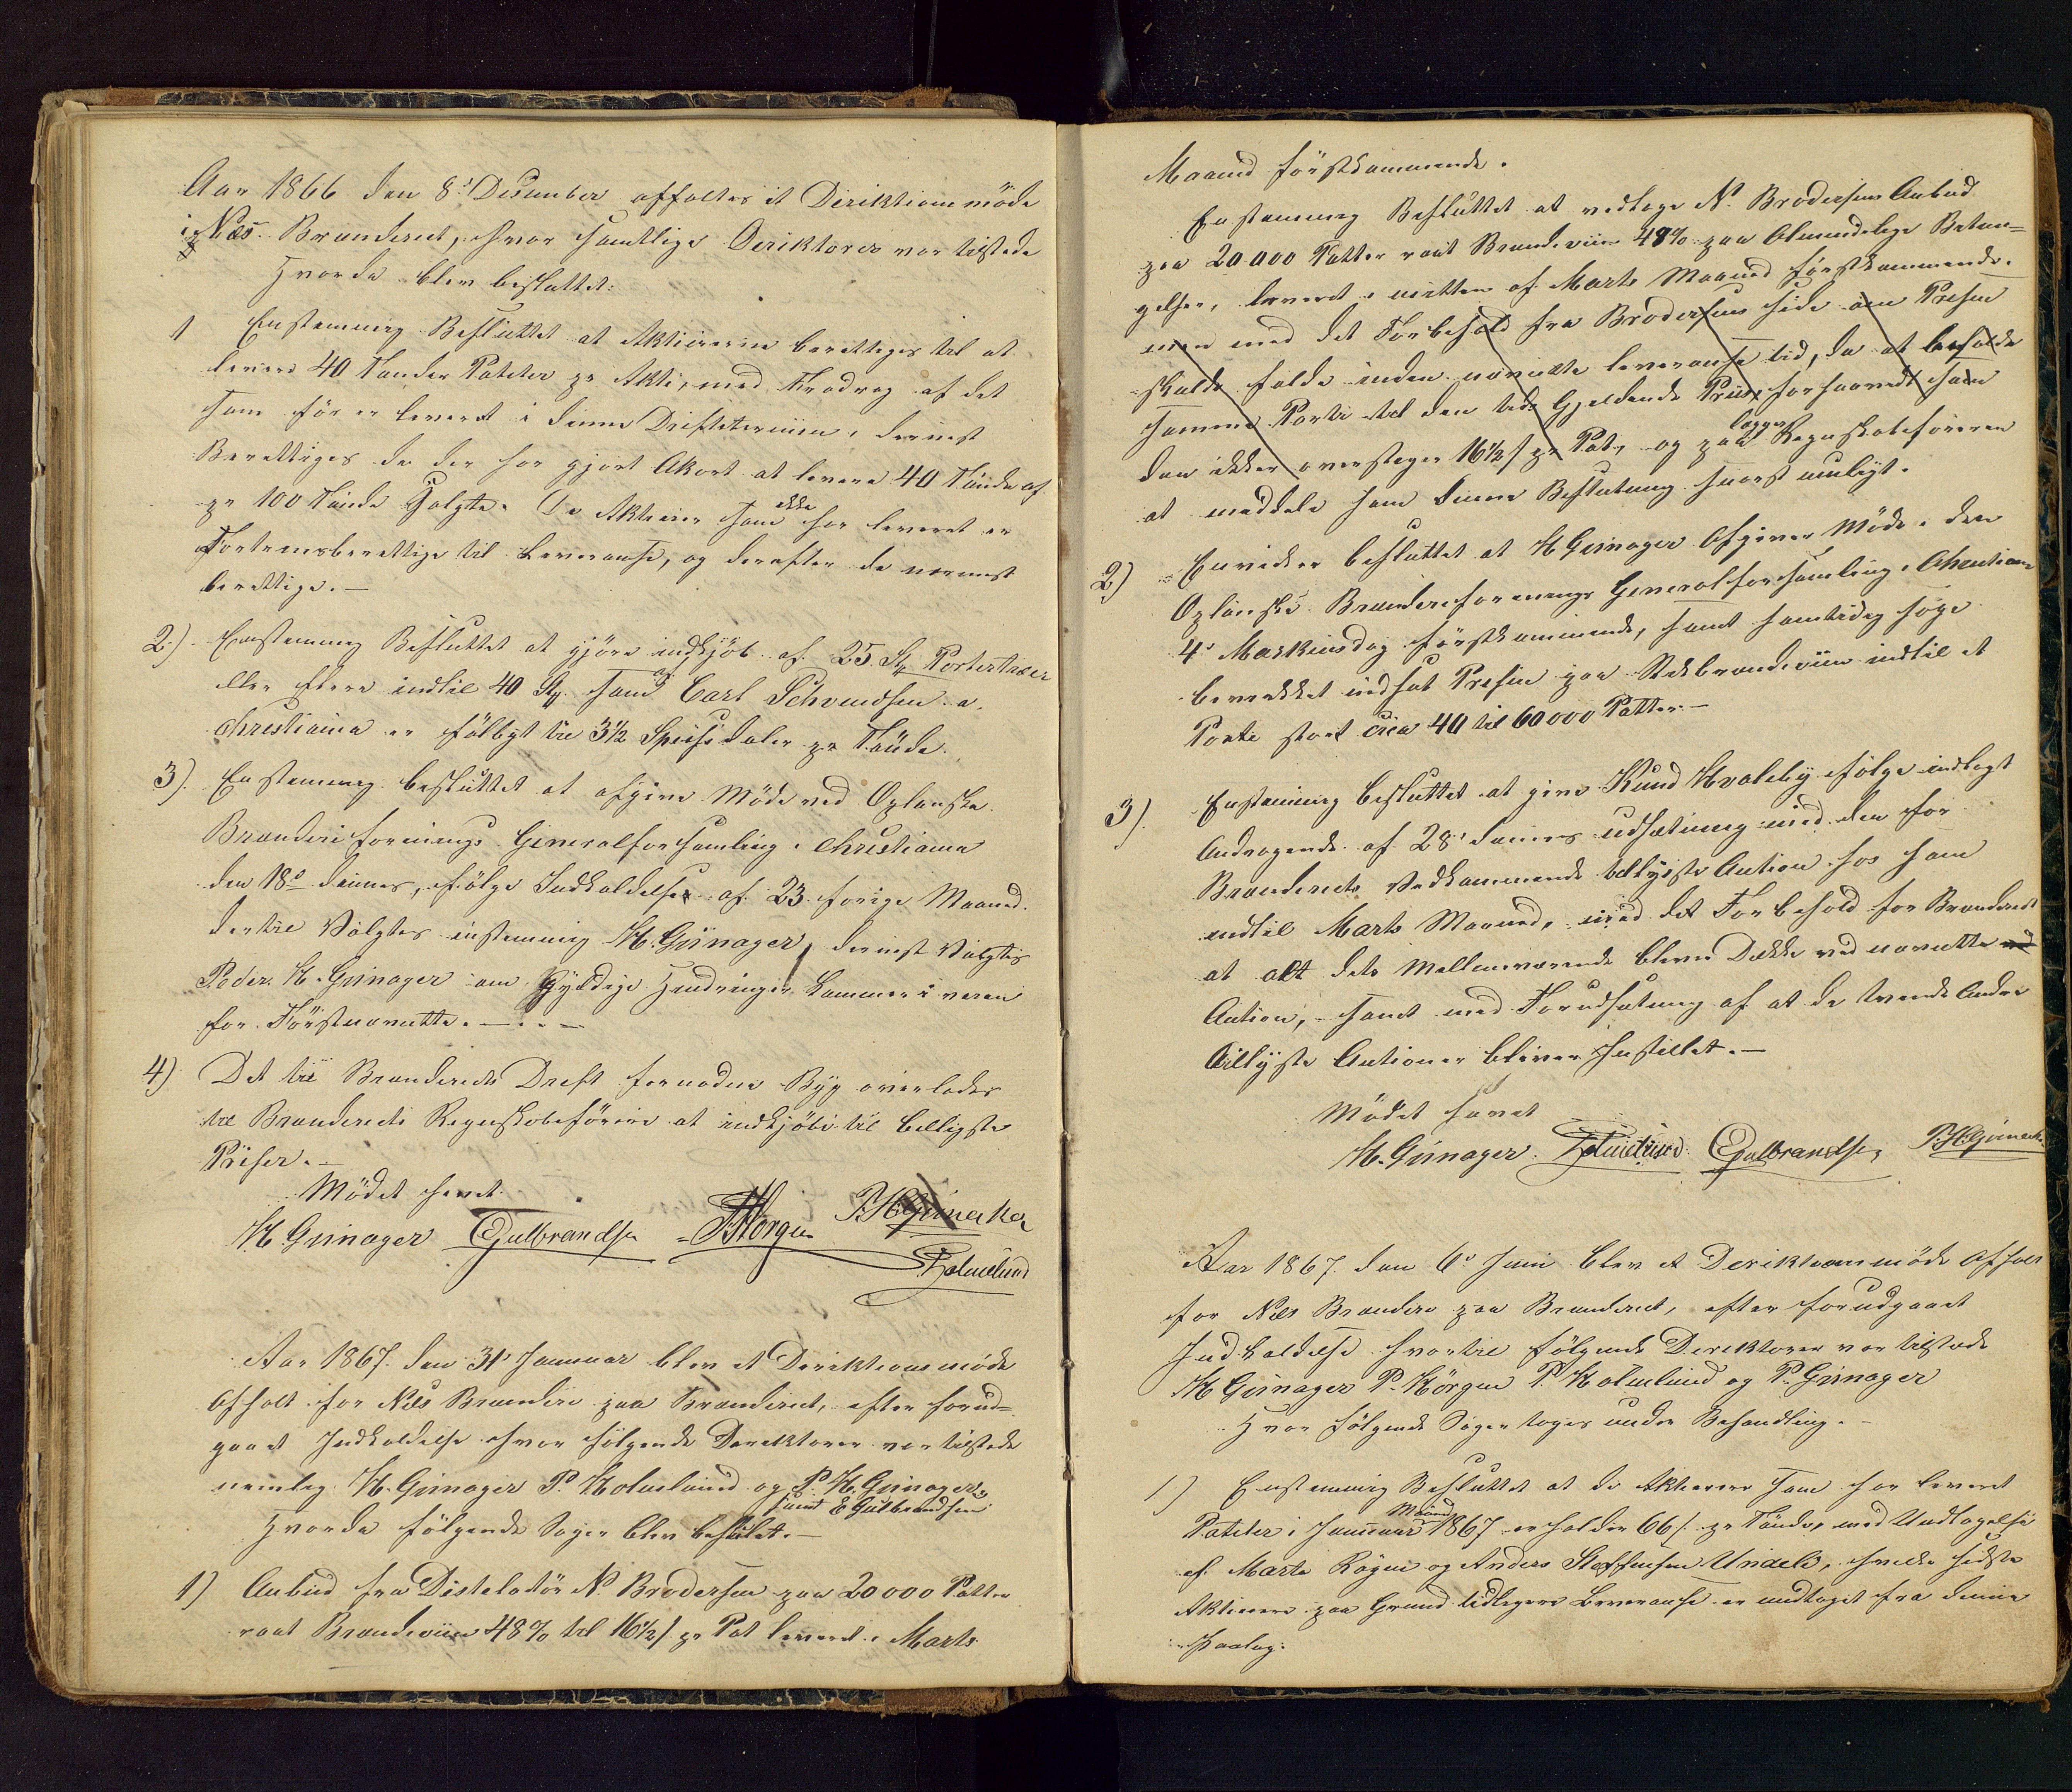 Aar 1866 den 8de Desember affoltes it Diriktionmöde
i Næs Brænderiet, hvor samtlige Diriktører var tilstede
Hvorda blev besluttet:
1 Enstemmig Besluttet at Aktieierne berettiges til at
levere 40 Tønder Poteter pr Aktie, med Fradrag af det
som før er leveret i denne Driftstermin, dernest
Berettiges de der har gjort Akort at levere 40 Tønde af
pr 100 Tønde Solgte. De Aktieeier som ikke har leveret er
Fortrinsberettige til Leveranse, og derefter de nermest
berettige. —
2.) Enstemmig Besluttet at gjøre indkjöb af 25 St Portertræer
eller flere indtil 40 St. som af Carl Schvendsen a.
Christiania er falbyt til 3½ Speciedaler pr Tönde.
3). Enstemmig besluttet at afgive Møde ved Oplanske
Brænderiforenings Generalforsamling i Christiania
den 18de dennes, ifölge Indkaldelse af 23 forige Maaned.
dertil Valgtes enstemmig H. Grinager, dernest Valgtes
Peder H. Grinager om Gyldige Hindringer kommer i veien
for Förstnævnte. — . —
4) Det til Brænderiets Drift fornødne Byg overlodes
til Brænderiets Regnskabsförere at indkjöbe til billigste
Priser. —
Mödet hævet
H Grinager EGulbrandsen PHörgen PHGrinaker
PHolmlund
Aar 1867 den 31te Januar blev et Direktionsmöde
Afholt for Næs Brænderi paa Brænderiet, efter forud-
gaaet Indkaldelse hvor fölgende Derektører var tilstede
nemlig H. Grinager P. Holmlund og P. H. Grinager,
samt E Gulbrandsen
Hvorda fölgende Sager blev besluttet. —
1) Anbud fra Distelatör N. Brodersen paa 20000 Potter
raat Brændeviin 48% til 16½ s pr Pot leveret i Marts
Maaned förstkommende.
Enstemmig Besluttet at vedtage N. Brodersens Anbud
paa 20000 Potter raat Brændeviin 48% paa Almindelige Betin=
gelser, leveret i mitten af Marts Maaned förstkommende.
men med det Forbehold fra Brodersens side om Prisen
skulde falde inden nævnte leveranse tid, da at beholde
samme Parti til den tids Gjeldende Priis forsaavidt som
den ikke overstiger 16½ s pr Pot, og paalegges Regnskabsföreren
at meddele ham denne Beslutning snarest muligt.
2) Envidere besluttet at H Grinager Afgiver Möde i den
Oplanske Brænderiforenings Generalforsamling i Christiania
4de Markinsdag förstkommende, samt samtidig söge
bevirkket indhat Prisen paa Stekbrændeviin indtil et
Parti stort circa 40 til 60000 Potter. —
3). Enstemmig besluttet at give Knud Hvaleby ifölge indlagt
Andragende af 28de dennes udsætning med den for
Brænderiets Vedkommende tillyste Aution hos ham
indtil Marts Maaned, med det Forbehold for Brænderiet
at alt dets Mellemværende bliver Dækket ved nævnte
Aution, samt med Forudsætning af at de tvende Andre
tillyste Autioner bliver Instillet. —
Mödet hævet
H. Grinager. PHolmlund EGulbrandsen PHGrinaker
Aar 1867 den 6te Juni blev et Derektionsmöde Afholt
for Næs Brænderi paa Brænderiet, efter forudgaaet
Indkaldelse hvortil fölgende Derektører var tilstede
H Grinager P. Hörgen P. Holmlund og P. Grinager
Hvor fölgende Sager toges under Behandling. —
1) Enstemmig Besluttet at de Aktieeiere som har leveret
Poteter i Januar Maaned 1867 erholder 66 s pr Tönde, med Undtagelse
af Marte Rogne og Anders Steffensen Undeli, hvilke sidste
Aktieeiere paa Grund tidligere Leveranse er undtaget fra denne
Paalag.